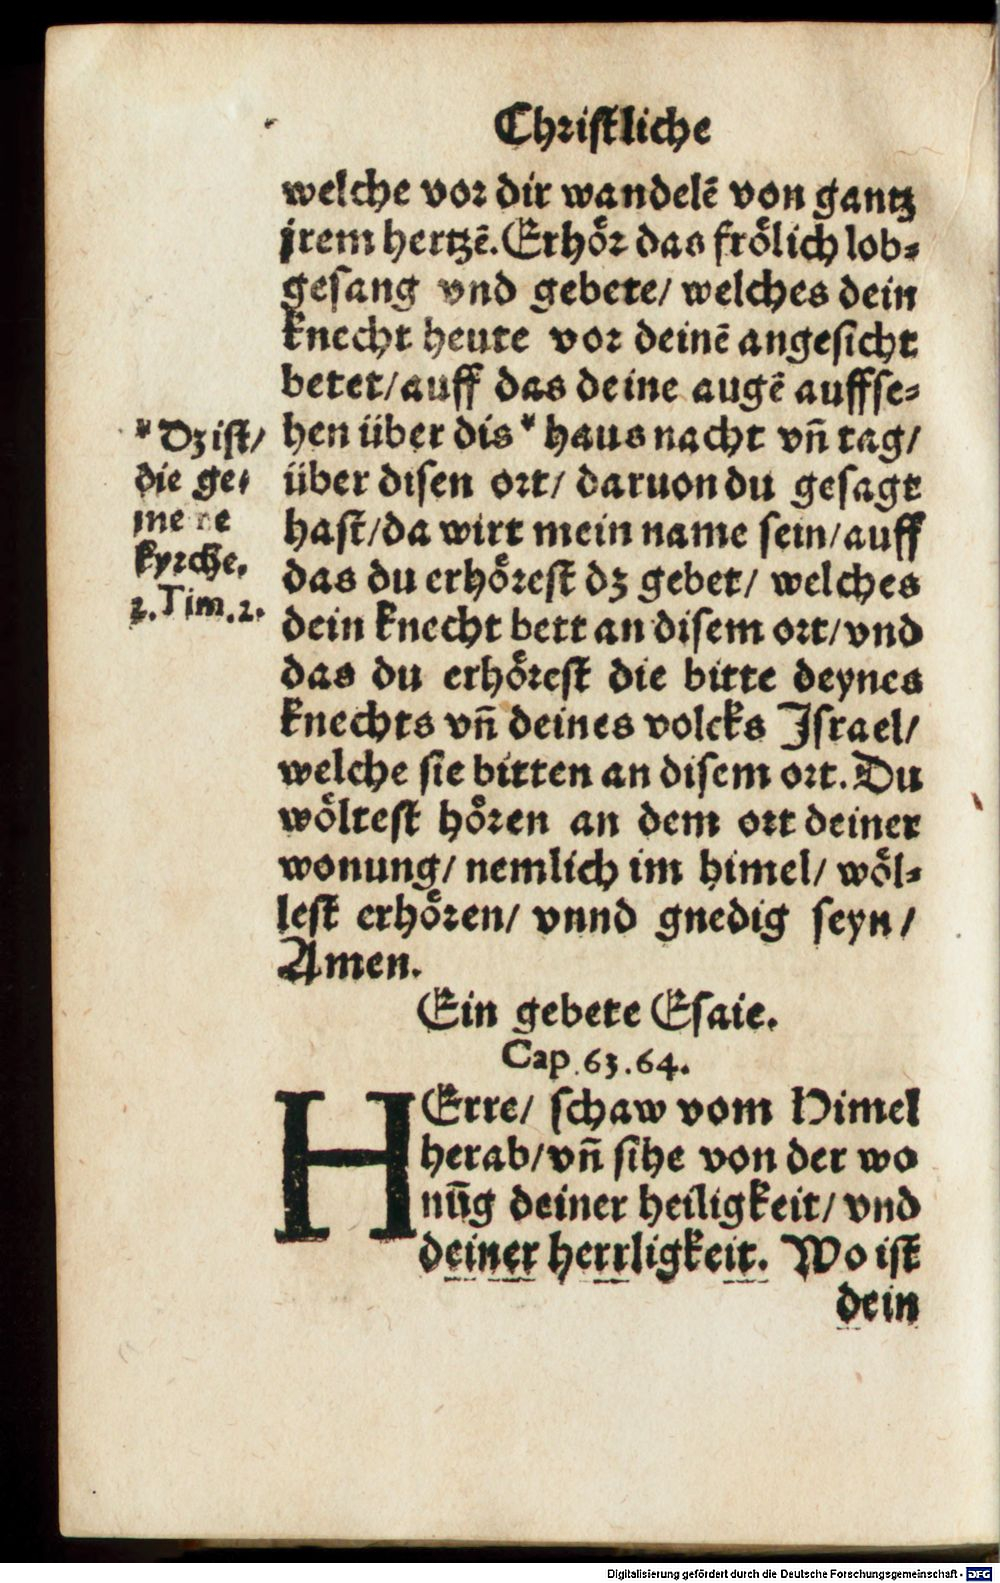 Christliche
welche vor dir wandelē von gantz
jrem hertzē. Erhoͤr das froͤlich lob⸗
gesang vnd gebete/ welches dein
knecht heute vor deinē angesicht
betet/ auff das deine augē auffse⸗
hen über dis * haus nacht vñ tag/
über disen ort/ daruon du gesagt
hast/ da wirt mein name sein/ auff
das du erhoͤrest dz gebet/ welches
dein knecht bett an disem ort/ vnd
das du erhoͤrest die bitte deynes
knechts vñ deines volcks Israel/
welche sie bitten an disem ort. Du
woͤltest hoͤren an dem ort deiner
wonung/ nemlich im himel/ woͤl⸗
lest erhoͤren/ vnnd gnedig seyn/
Amen.
* Dz ist/
die ge⸗
me ne
kyrche.
2. Tim. 2.
Ein gebete Esaie.
Cap. 63. 64.
HErre/ schaw vom Himel
herab/ vñ sihe von der wo
nūg deiner heiligkeit/ vnd
deiner herrligkeit. Wo ist
dein
Digitalisierung gefördert durch die Deutsche Forschungsgemeinschaft - DFG